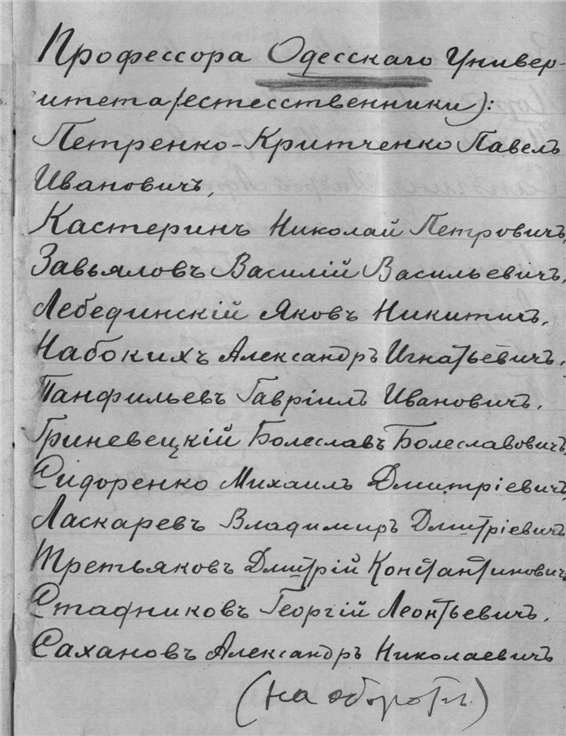 Профессора Одесскаго Универ-
ситета (естесственники):
Петренко-Критченко Павелъ
Ивановичъ,
Кастеринъ Николай Петровичъ,
Завьяловъ Василій Васильевичъ,
Лебединскій Яковъ Никитичъ,
Набокихъ Александръ Игнатьевичъ,
Танфильевъ Гавріилъ Ивановичъ,
Гриневецкій Болеславъ Болеславовичъ,
Сидоренко Михаилъ Дмитріевичъ,
Ласкаревъ Владимиръ Дмитріевичъ
Третьяковъ Дмитрій Константиновичъ,
Стадниковъ Георгій Леонтьевичъ,
Сахановъ Александръ Николаевичъ
(на оборотѣ)